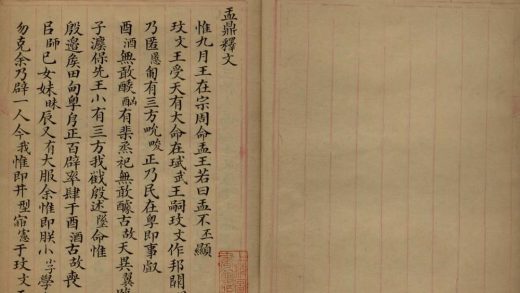 盂鼎釋文
惟九月王在宗周命盂王若曰盂不丕顯
玟文王受天有大命在珷武王嗣玟文作邦闢
乃匿慝匍有三方畯正乃民在粤即事
酉酒無敢有祀無敢醵古故天異翼
子灋保先王小有三方我殷述墜命惟
殷邊矦田甸粤正百辟率肆于酉酒古故喪
師巳女妹昧辰又有大服余惟即朕小子學
勿克余乃辟一人今我惟即井型憲于玟文